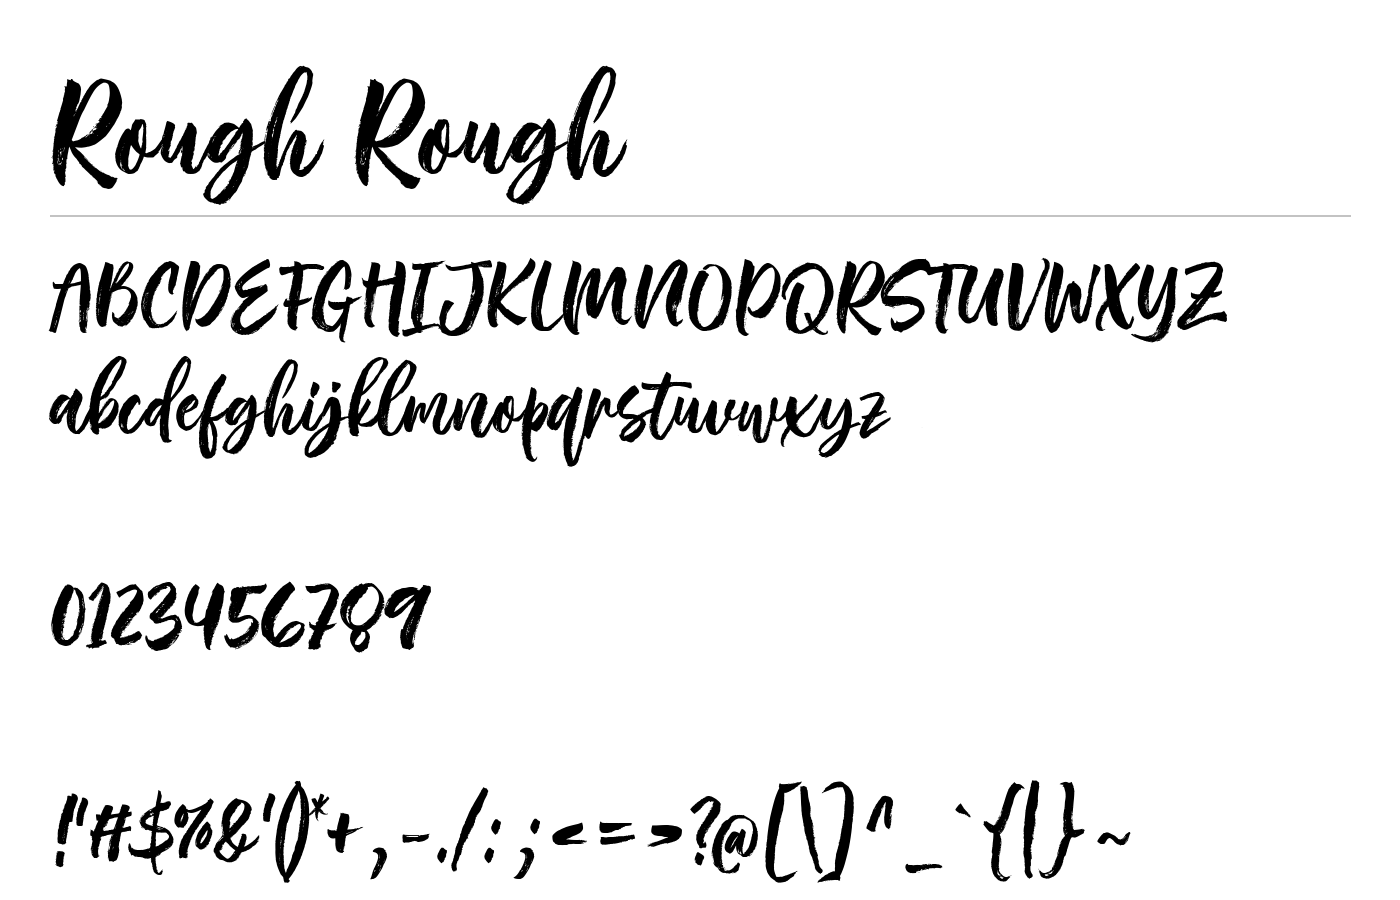 Rough Rough
ABCDEFGHIJKLMNOPQRSTUVWXYZ
abcdefghijklmnopqrstuvwxyz
0123456789
!"#$%&'()*+,-./:;<=>?@[\]^_`{|}~